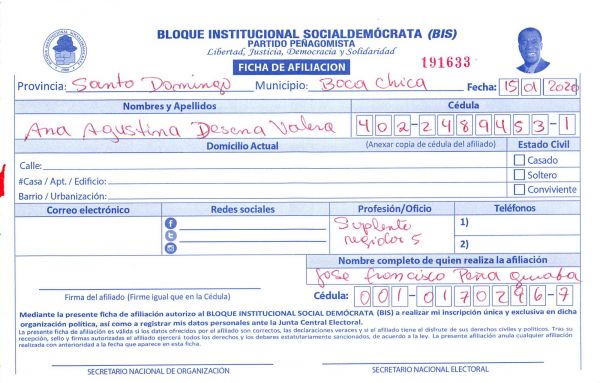 BLOQUE INSTITUCIONAL SOCIALDEMÓCRATA (BIS)
PARTIDO PEÑAGOMISTA
Libertad, Justicia, Democracia y Solidaridad
FICHA DE AFILIACION
191633
Provincia: Santo Domingo Municipio: Boca Chica Fecha: 15 01 2020
Nombres y Apellidos Cédula
Ana Agustina Desena Valera 402-2489453-1
Domicilio Actual (Anexar copia de cédula del afiliado) Estado Civil
Calle: Casado
#Casa / Apt. / Edificio: Soltero
Barrio / Urbanización: Conviviente
Correo electrónico Redes sociales Profesión/Oficio Teléfonos
Suplente 1)
regidor 5 2)
Nombre completo de quien realiza la afiliación
Jose Francisco Peña Guaba
Firma del afiliado (Firme igual que en la Cédula) Cédula: 001-0170296-7
Mediante la presente ficha de afiliación autorizo al BLOQUE INSTITUCIONAL SOCIAL DEMÓCRATA (BIS) a realizar mi inscripción única y exclusiva en dicha
organización política, así como a registrar mis datos personales ante la Junta Central Electoral.
La presente ficha de afiliación es válida si los datos ofrecidos por el afiliado son correctos, las declaraciones veraces y si el afiliado tiene el disfrute de sus derechos civiles y políticos. Tras su
recepción, sello y firmas autorizadas el afiliado ejercerá todos los derechos y los deberes estatutariamente sancionados, de acuerdo a la ley. La presente afiliación anula cualquier afiliación
realizada con anterioridad a la fecha que aparece en esta ficha.
SECRETARIO NACIONAL DE ORGANIZACIÓN SECRETARIO NACIONAL ELECTORAL